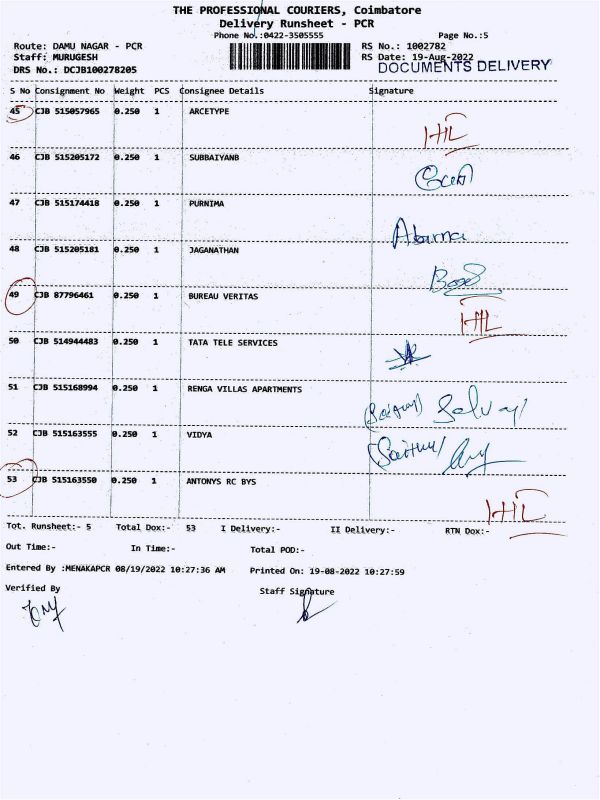 THE PROFESSIONAL COURIERS, Coimbatore
Delivery Runsheet - PCR
Phone No.:0422-3505555 Page No.:5
Route: DAMU NAGAR - PCR RS No.: 1002782
Staff: MURUGESH RS Date: 19-Aug-2022
DRS No.: DCJB100278205 DOCUMENTS DELIVERY
S No Consignment No Weight PCS Consignee Details Signature
45 CJB 515057965 0.250 1 ARCETYPE
46 CJB 515205172 0.250 1 SUBBAIYANB
47 CJB 515174418 0.250 1 PURNIMA
48 CJB 515205181 0.250 1 JAGANATHAN
49 CJB 87796461 0.250 1 BUREAU VERITAS
50 CJB 514944483 0.250 1 TATA TELE SERVICES
51 CJB 515168994 0.250 1 RENGA VILLAS APARTMENTS
52 CJB 515163555 0.250 1 VIDYA
53 CJB 515163550 0.250 1 ANTONYS RC BYS
Tot. Runsheet:- 5 Total Dox:- 53 I Delivery:- II Delivery:- RTN Dox:-
Out Time:- In Time:- Total POD:-
Entered By :MENAKAPCR 08/19/2022 10:27:36 AM Printed On: 19-08-2022 10:27:59
Verified By Staff Signature